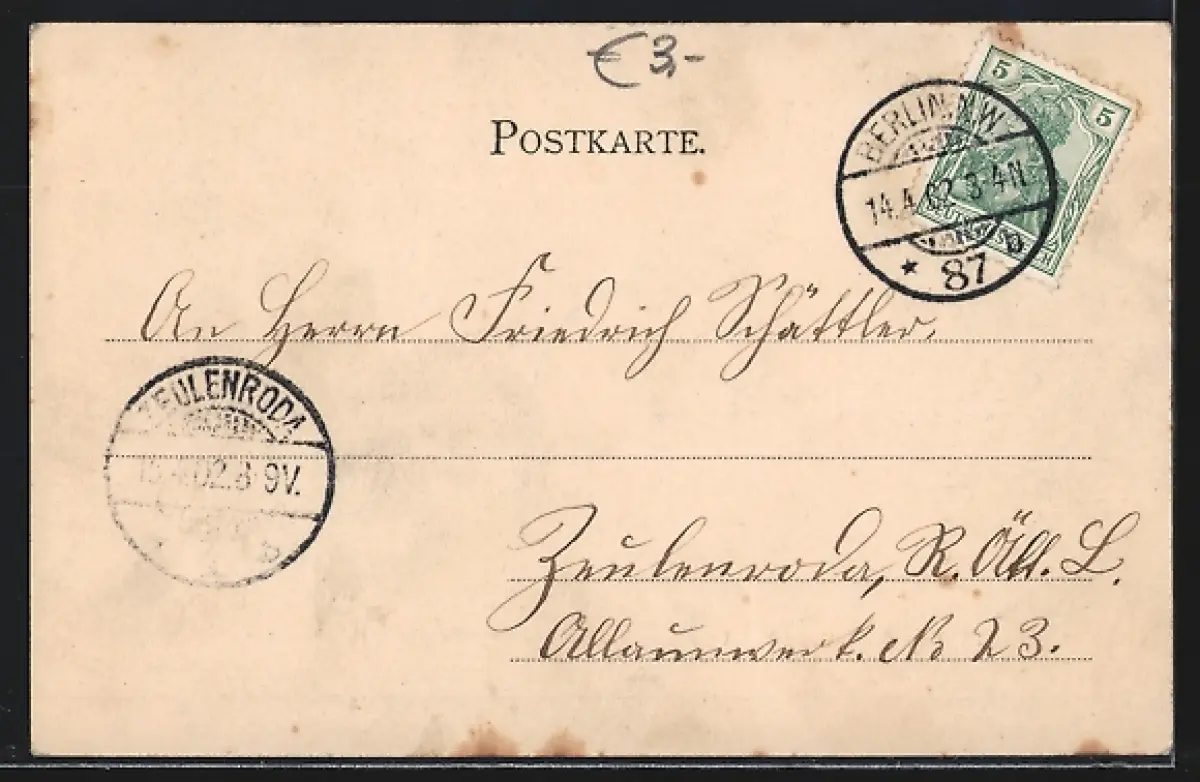 € 3,-
POSTKARTE.
5 5
BERLIN, N.W.
14.4.02. 3-4N.
* 87 b
An Herrn Friedrich Schättler,
ZEULENRODA
15.4.02. 8-9V.
Zeulenroda, R. Ält. L.
Allaunwerk. No 23.